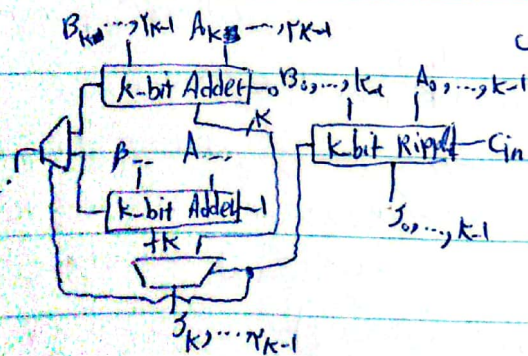 B_k, ..., ۲k-1 A_k, ..., ۲k-1
k-bit Adder 0 B_0, ..., k-1 A_0, ..., k-1
k
k-bit Ripple Cin
B... A...
k-bit Adder 1
k
S_0, ..., k-1
S_k, ... ۲k-1